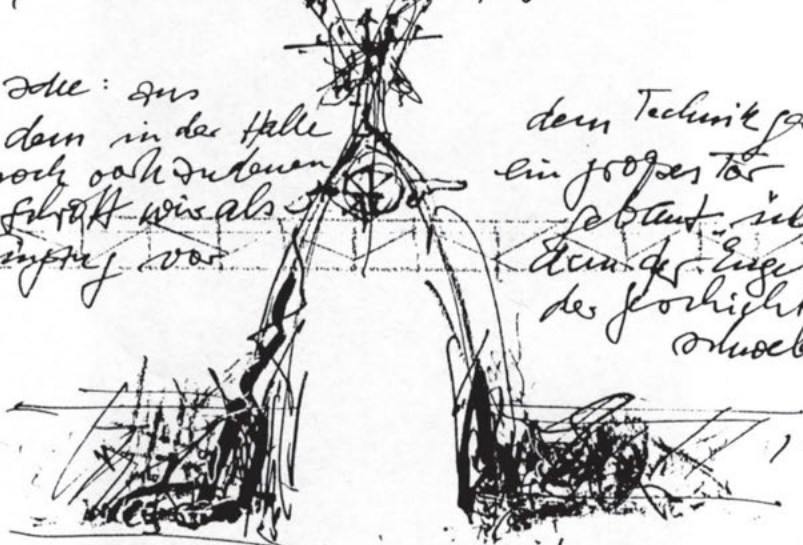 aus
dem in der Halle
noch vorhandenen
Schrott wir als
Eingang vor
dem Technik
ein großes Tor
gebaut
dem der Engel
der Geschicht
schweb